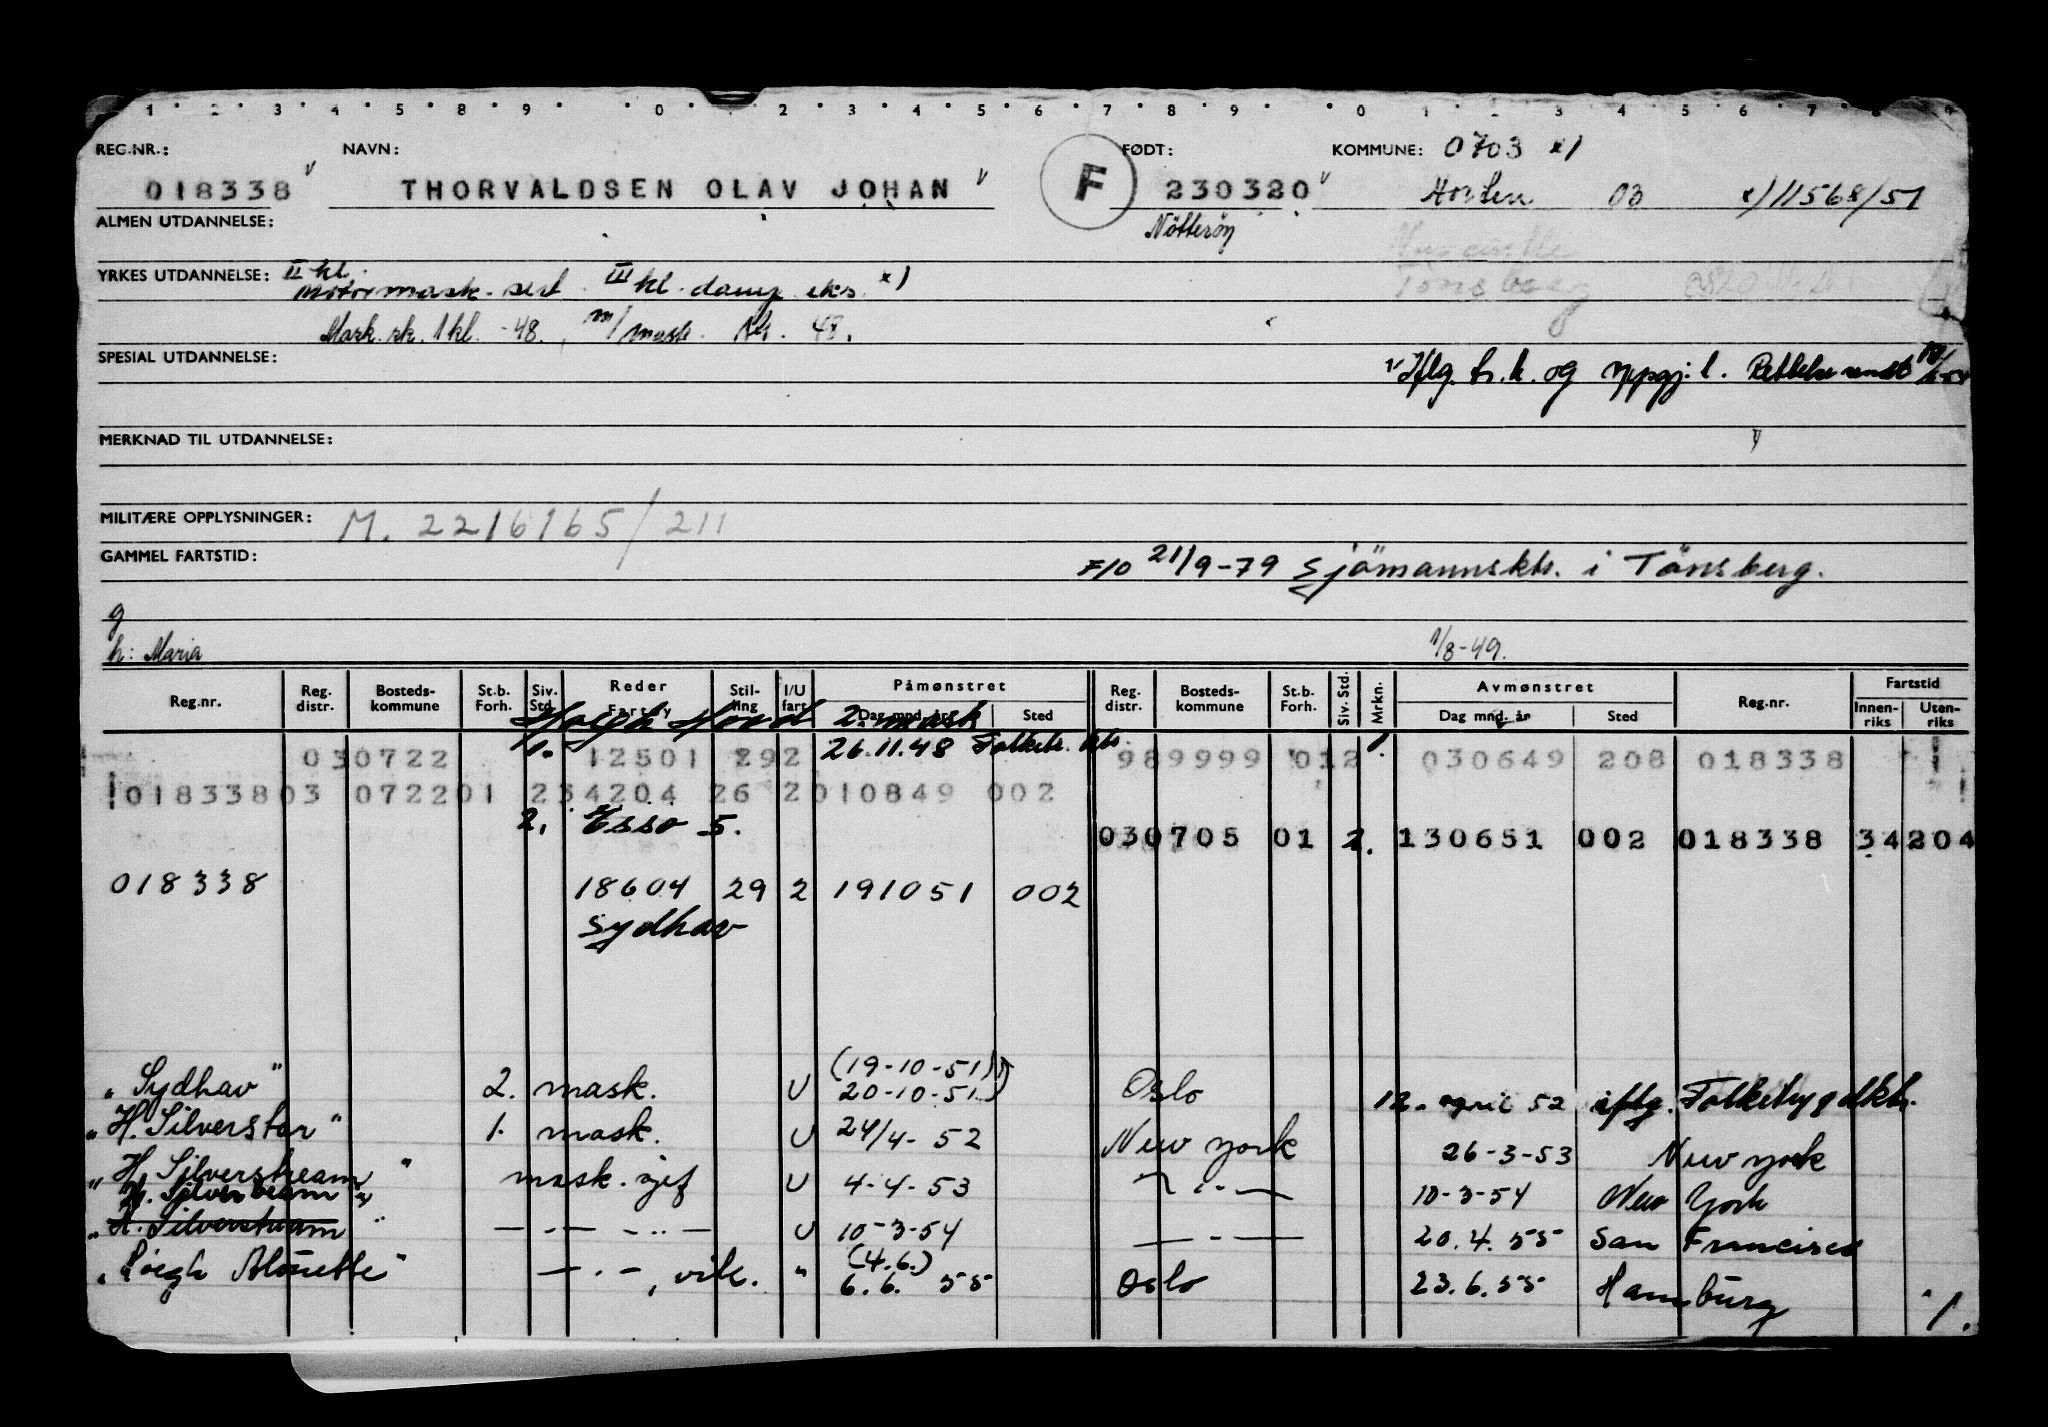 1 2 3 4 5 8 9 0 2 3 4 5 6 7 8 9 0 1 2 3 4 5 6 7 8
REG.NR.: NAVN: FØDT: KOMMUNE: 0703 x)
018338 THORVALDSEN OLAV JOHAN F 230320 Horten 03 x) 11568/51
ALMEN UTDANNELSE: Nötteröy
Tönsberg
YRKES UTDANNELSE: II kl. motormask. sert. III kl. damp eks. x)
Mask. sk. 1 kl. -48. m/mask. 48.
SPESIAL UTDANNELSE:
Iflg. h.k. og oppgj. l. Rettelse sendt
MERKNAD TIL UTDANNELSE:
MILITÆRE OPPLYSNINGER: M. 2216165/211
GAMMEL FARTSTID:
F/O 21/9-79 Sjömannsktr. i Tönsberg.
g
h: Maria 1/8-49.
Reg.nr. Reg. distr. Bosteds-kommune St.b. Forh. Siv. Std. Reder Fartøy Stil-ling I/U fart Påmønstret Dag mnd. år Sted Reg. distr. Bosteds-kommune St.b. Forh. Siv. Std. Mrkn. Avmønstret Dag mnd. år Sted Reg.nr. Fartstid Innen-riks Uten-riks
Høegh Hood 2. mask
030722 1. 12501 292 26.11.48 Folketr. ktr. 989999 012 1. 030649 208 018338
01833803 072201 234204 26 2010849 002
2. Esso 5.
030705 01 2. 130651 002 018338 34204
018338 18604 29 2 191051 002
Sydhav
(19-10-51)
"Sydhav" 2. mask. U 20-10-51 Oslo 12. april 52 iflg. Folketrygdktr.
"H. Silverstar" 1. mask. U 24/4-52 New York 26-3-53 New York
"H. Silverstream" mask. sjef U 4-4-53 —"— 10-3-54 New York
"H. Silverbeam"
"H. Silverstream" —"— —"— U 10-3-54 —"— 20.4.55 San Francisco
(4.6.)
"Höegh Alouette" —"—, vik. " 6.6. 55 Oslo 23.6.55 Hamburg 1.